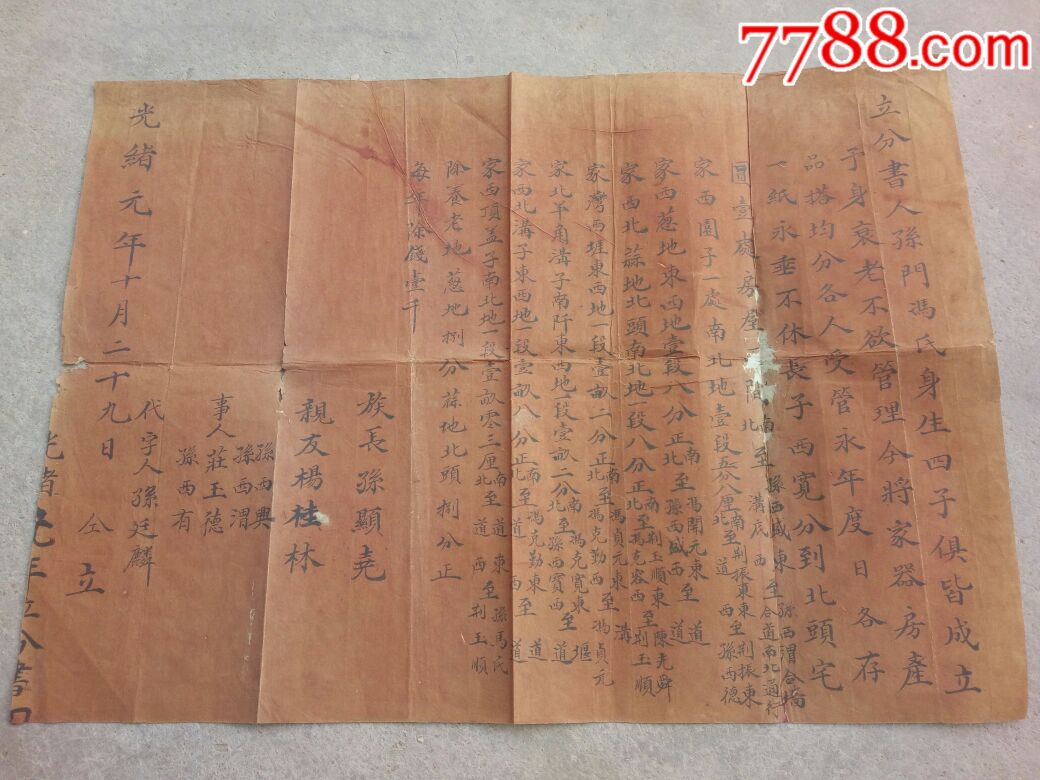 7788.com
立分書人孫門馮氏身生四子俱皆成立
予身衰老不欲管理今將家器房產
品搭均分各人受管永年度日各存
一紙永垂不休長子西寬分到北頭宅
圓壹處房屋 間 南北至孫西威 溝底 東西至孫西渭合墻 合道南北通行
家西園子一處南北地壹段 分八厘 南北至荆振東 道 東西至荆振東 孫西德
家西葱地東西地壹段八分正 南北至馮開元 孫西威 東西至陳光舜 道
家西北蒜地北頭南北地一段八分正 南北至荆玉順 馮克容 東西至 道 荆玉順
家灣西堐東西地一段壹畝二分正 南北至馮貞元 馮克勤 東西至溝 馮貞元
家北羊角溝子南阡東西地一段壹畝二分 南北至馮克寬 孫西賓 東西至堰 道
家西北溝子東西地一段壹畝八分正 南北至馮克勤 道 東西至道 道
家西頂盖子南北地一段壹畝零三厘 南北至道 道 東西至孫馬氏 荆玉順
除養老地葱地捌分蒜地北頭捌分正
每年除錢壹千
族長孫顯堯
親友楊桂林
事人 孫西興 孫西渭 莊玉德 孫西有
代字人孫廷麟
仝立
光緒元年十月二十九日
光緒元年立分書